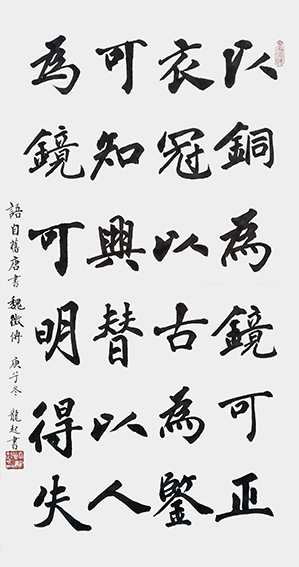 以銅為鏡可正
衣冠以古為鑒
可知興替以人
為鏡可明得失
語自舊唐書魏徵傳 庚子冬 龍起書